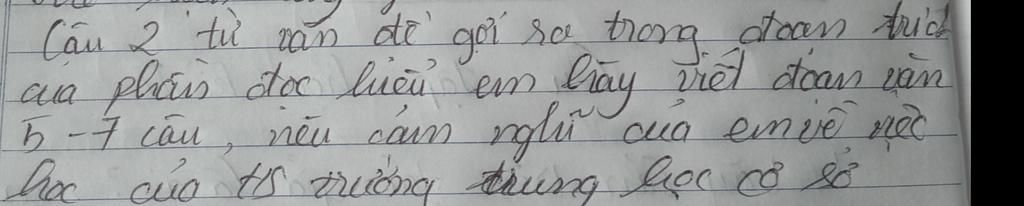 Câu 2 từ vấn đề gợi ra trong đoạn trích
của phần đọc hiểu em hãy viết đoạn văn
5 - 7 câu, nêu cảm nghĩ của em về việc
học của HS trường trung học cơ sở